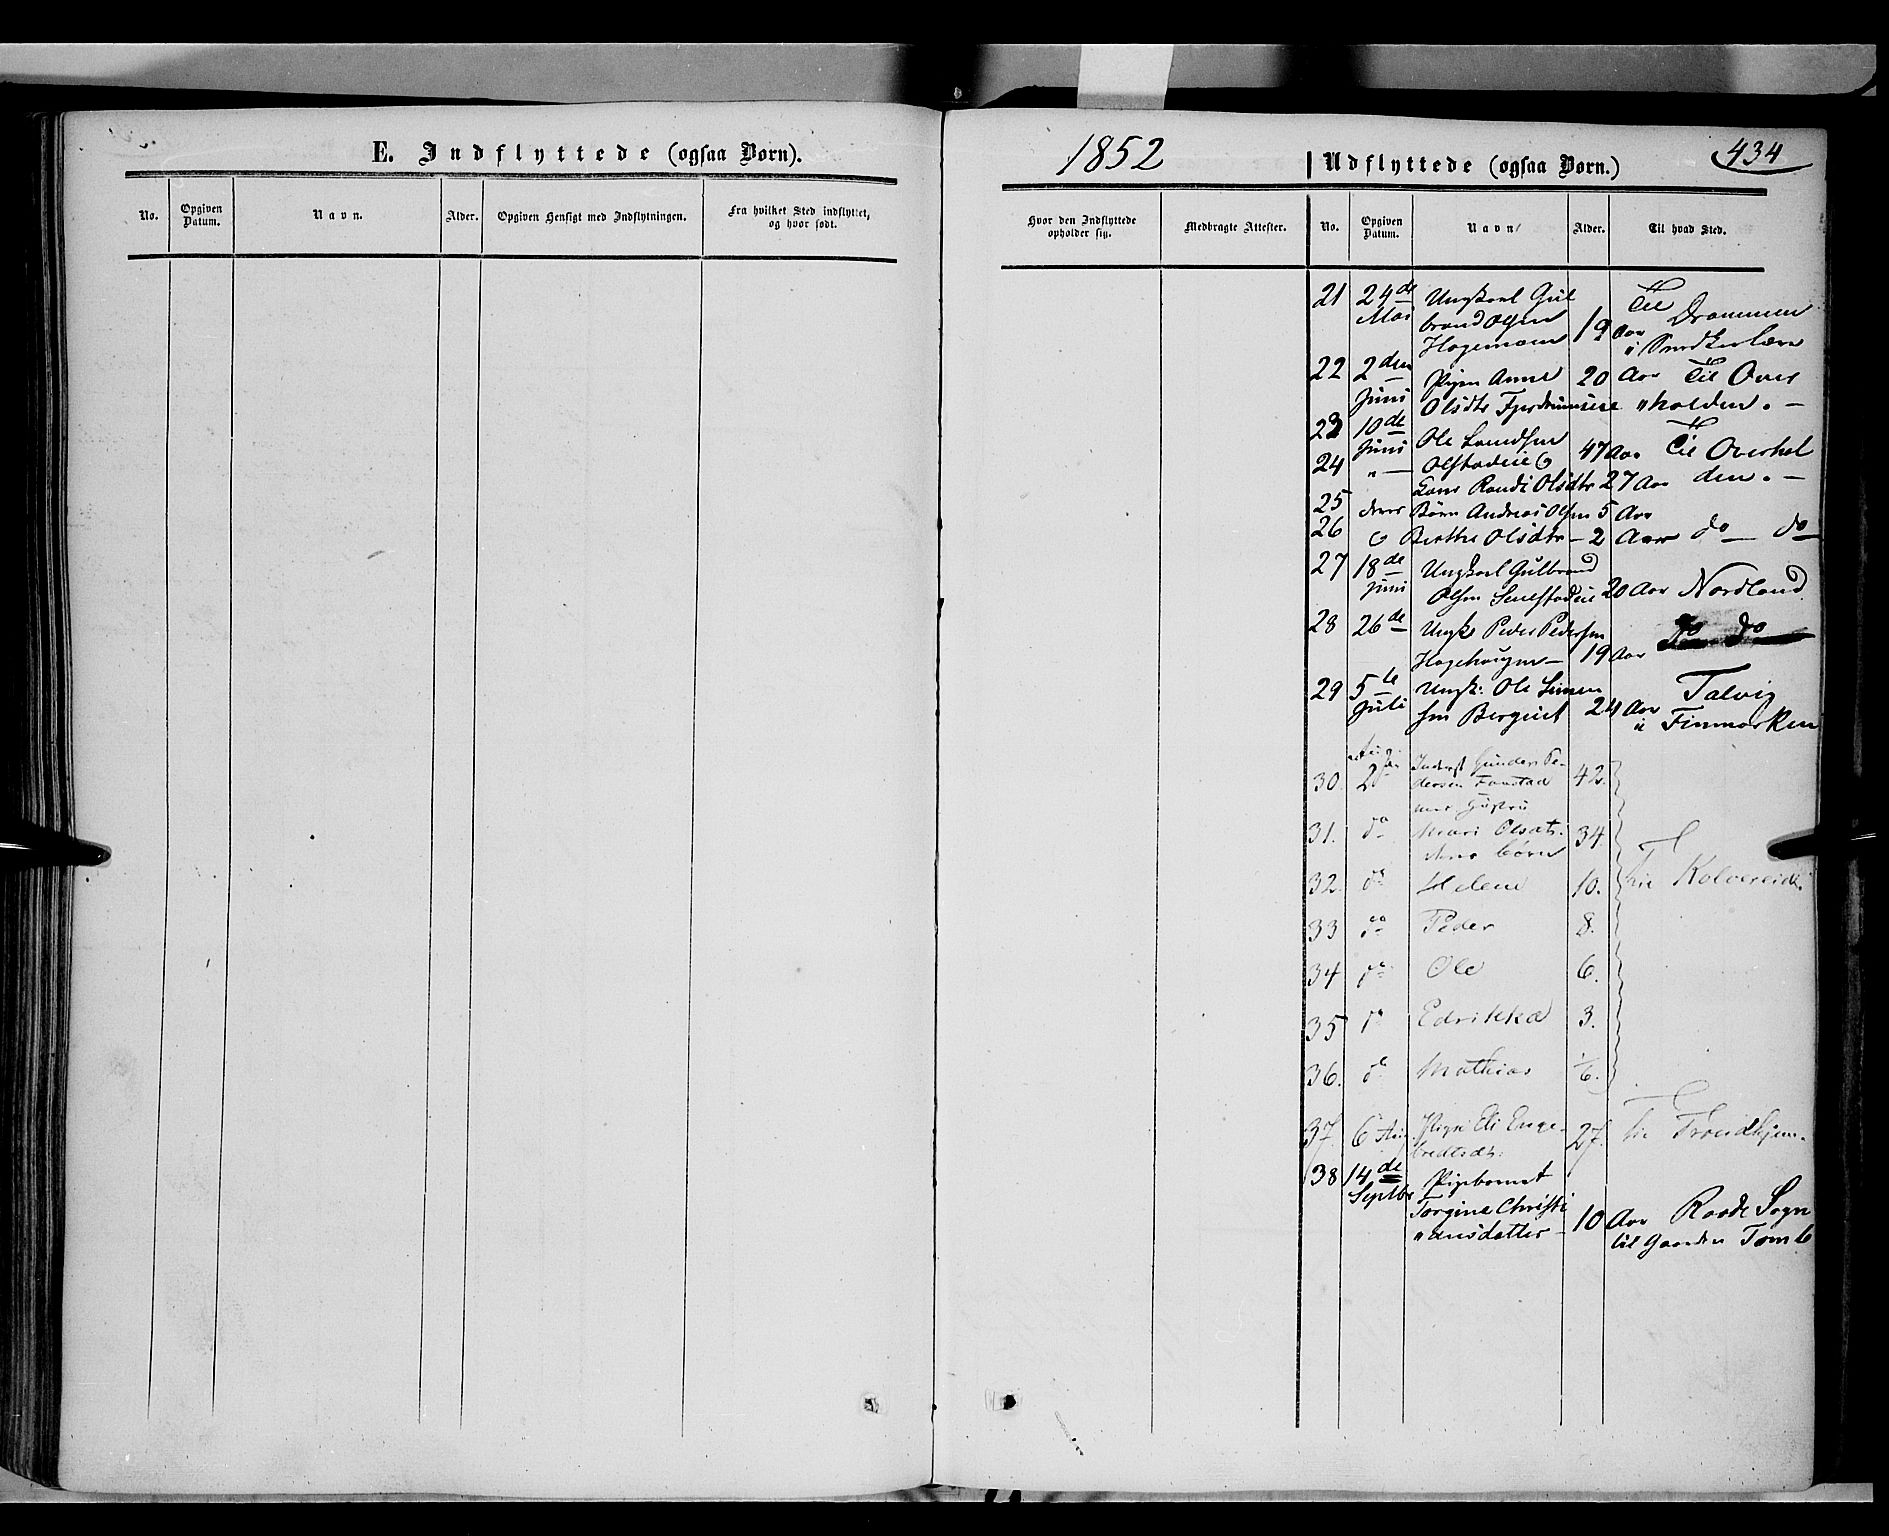 E. Indflyttede (ogsaa Børn).
No.
Opgiven Datum.
Navn.
Alder.
Opgiven Hensigt med Indflytningen.
Fra hvilket Sted indflyttet, og hvor født.
1852
Udflyttede (ogsaa Børn.)
434
Hvor den Indflyttede opholder sig.
Medbragte Attester.
No.
Opgiven Datum.
Navn
Alder.
Til hvad Sted.
21 24de Ungkarl Gul Til
Mai brand Olsen 19 Aar Drammen
Hagemoen i Snedkerlære
22 2den Pigen Anne 20 Aar Til Over
Juni Olsdtr "halden. —
23 10de Ole
Juni 47 Aar Til Overhal
24 " — Olstadeie &
Kone Randi Olsdtr 27 Aar den. —
25 deres Børn Andreas Olsen 5 Aar
26 & Berthe Olsdtr — 2 Aar do — do
27 18de Ungkarl Gulbrand
Juni Olsen 20 Aar Nordland
28 26de Ungk: Peder Pedersen do do
Hagehaugen — 19 Aar
29 5te Ungk: Ole Simen Talvig
Juli sen Bergeiet 24 Aar i Finmarken
Aug.
30. 2den Inderst Gunder Pe- 42.
dersen Fonstad
med Hustru
31. do Mari Olsdtr. 34.
deres børn
32. do Helene 10. til Kolvereid.
33 do Peder 8.
34 do Ole 6.
35 do Edrikka 3.
36. do Mathias 1/6.
37. 6 Aug Pige Eli Enge- 27. til Trondhjem.
bredtsdt.
38 14de Pigebarnet
Septbr Torgine Christi Raade Sogn
"ansdatter — 10 Aar til Gaarden Tomb